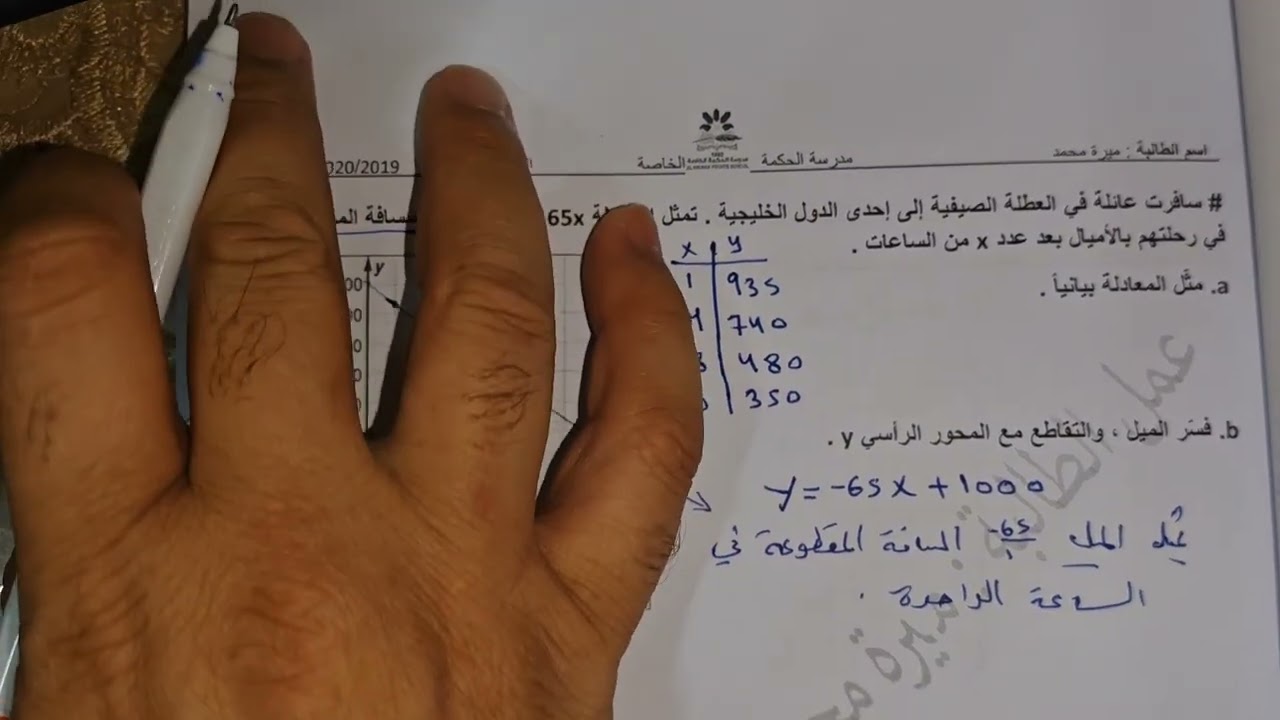 اسم الطالبة : ميرة محمد
مدرسة الحكمة الخاصة
020/2019
# سافرت عائلة في العطلة الصيفية إلى إحدى الدول الخليجية . تمثل 65x
في رحلتهم بالأميال بعد عدد x من الساعات .
a. مثّل المعادلة بيانياً .
x y
1 935
740
480
350
y
b. فسّر الميل ، والتقاطع مع المحور الرأسي y .
y = -65x + 1000
الميل -65/1 المسافة المقطوعة في
الساعة الواحدة .
عمل الطالبة ميرة